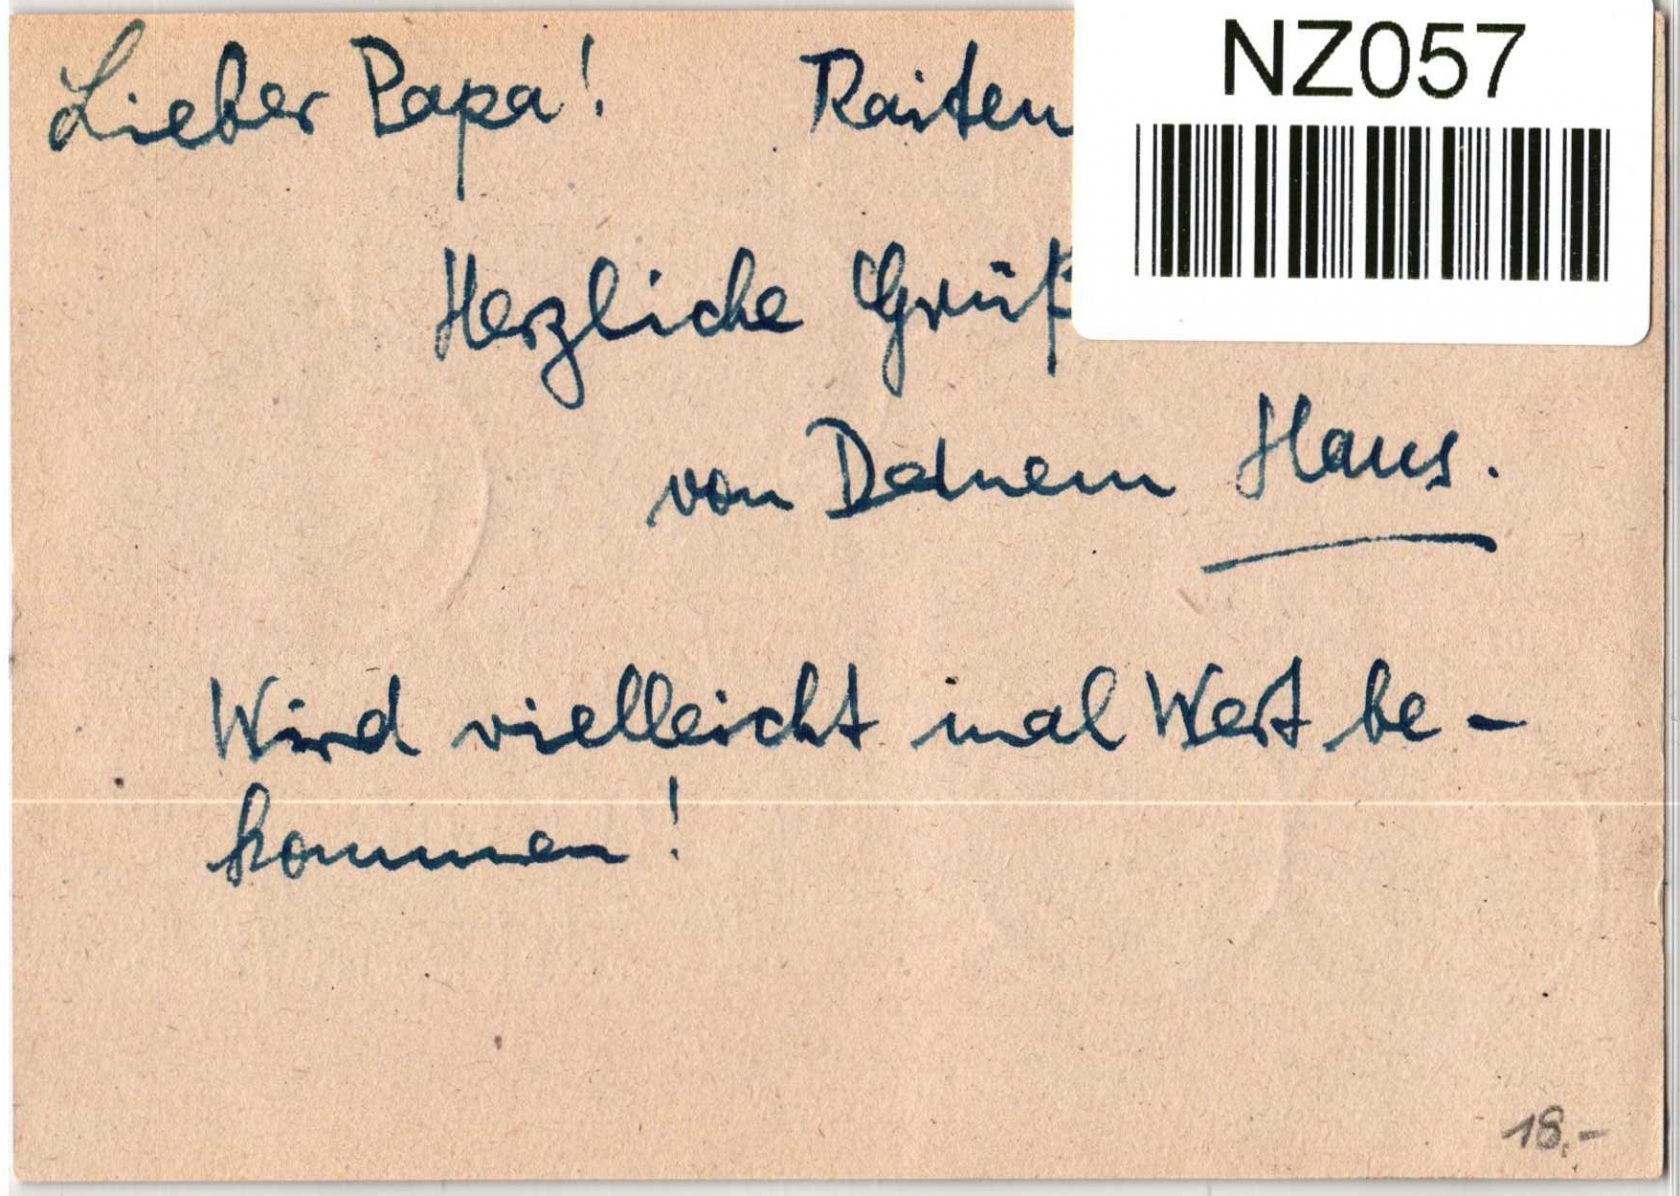 NZ057
Lieber Papa! Raiten
Herzliche Grüß
von Deinem Hans.
Wird vielleicht mal Wert be-
kommen!
18.-